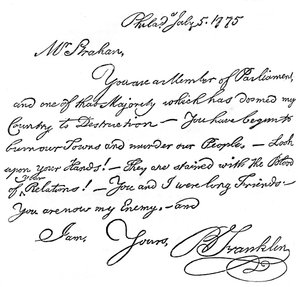 Philada July 5. 1775
Mr Strahan,
You are a Member of Parliament,
and one of that Majority which has doomed my
Country to Destruction. — You have begun to
burn our Towns and murder our People. — Look
upon your Hands! — They are stained with the Blood
of your Relations! — You and I were long Friends: —
You are now my Enemy, — and
I am,
Yours,
B Franklin